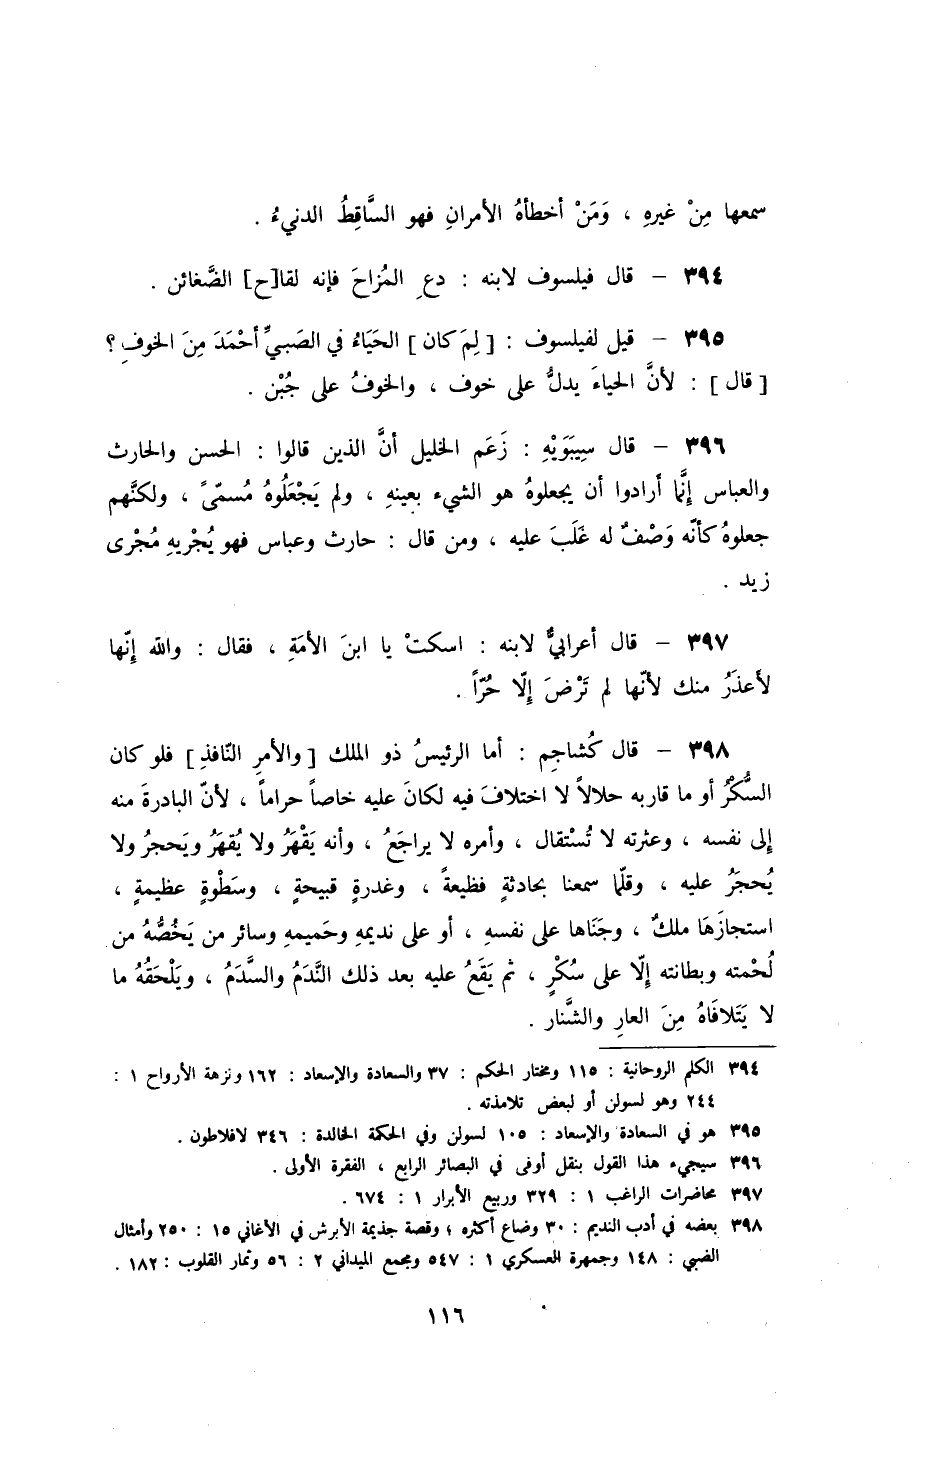 سمعها مِنْ غيرهِ ، وَمَنْ أخطأهُ الأمرانِ فهو السَّاقِطُ الدنيءُ .
٣٩٤ – قال فيلسوف لابنه : دعِ المُزاحَ فإنه لقا[ح] الضَّغائن .
٣٩٥ – قيل لفيلسوف : [ لِمَ كان ] الحَيَاءُ في الصَبيِّ أحْمَدَ مِنَ الخوفِ ؟
[ قال ] : لأنَّ الحياءَ يدلُّ على خوف ، والخوفُ على جُبْن .
٣٩٦ – قال سِيبَوَيْهِ : زَعَم الخليل أنَّ الذين قالوا : الحسن والحارث
والعباس إنَّما أرادوا أن يجعلوهُ هو الشيء بعينهِ ، ولم يَجْعَلُوهُ مُسمّىً ، ولكنَّهم
جعلوهُ كأنّه وَصْفٌ له غَلَبَ عليه ، ومن قال : حارث وعباس فهو يُجْريهِ مُجْرى
زيد .
٣٩٧ – قال أعرابيٌّ لابنه : اسكتْ يا ابنَ الأمَةِ ، فقال : والله إنّها
لأَعذَرُ منك لأنّها لم تَرْضَ إلّا حُرّاً .
٣٩٨ – قال كُشاجِم : أما الرئيسُ ذو الملك [ والأمرِ النّافذِ ] فلو كان
السُّكْرُ أو ما قاربه حلالاً لا اختلافَ فيه لكانَ عليه خاصاً حراماً ، لأنّ البادرةَ منه
إلى نفسه ، وعثرته لا تُسْتقال ، وأمره لا يراجَعُ ، وأنه يَقْهَرُ ولا يُقهَرُ ويَحجرُ ولا
يُحجَرُ عليه ، وقلّما سمعنا بحادثةٍ فظيعةً ، وغدرةٍ قبيحةٍ ، وسَطْوةٍ عظيمةٍ ،
استجازَهَا ملكٌ ، وجَنَاها على نفسهِ ، أو على نديمهِ وحَميمهِ وسائر من يَخُصُّهُ من
لُحْمته وبطانته إلّا على سُكْرٍ ، ثم يَقَعُ عليه بعد ذلك النَّدَمُ والسَّدَمُ ، ويَلْحَقُهُ ما
لا يَتَلافَاهُ مِنَ العارِ والشَّنار .
٣٩٤ الكلم الروحانية : ١١٥ ومختار الحكم : ٣٧ والسعادة والإسعاد : ١٦٢ ونزهة الأرواح ١ :
٢٤٤ وهو لسولن أو لبعض تلامذته .
٣٩٥ هو في السعادة والإسعاد : ١٠٥ لسولن وفي الحكمة الخالدة : ٣٤٦ لافلاطون .
٣٩٦ سيجيء هذا القول بنقل أوفى في البصائر الرابع ، الفقرة الأولى .
٣٩٧ محاضرات الراغب ١ : ٣٢٩ وربيع الأبرار ١ : ٦٧٤ .
٣٩٨ بعضه في أدب النديم : ٣٠ وضاع أكثره ؛ وقصة جذيمة الأبرش في الأغاني ١٥ : ٢٥٠ وأمثال
الضبي : ١٤٨ وجمهرة العسكري ١ : ٥٤٧ ومجمع الميداني ٢ : ٥٦ وثمار القلوب : ١٨٢ .
١١٦